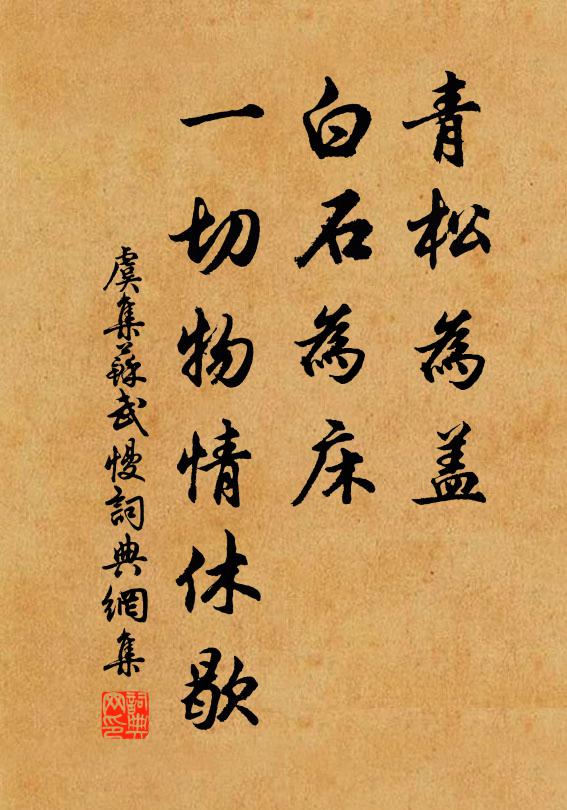 青松為盖
白石為床
一切物情休歇
虞集蘇武慢詞典網集
詞典网印